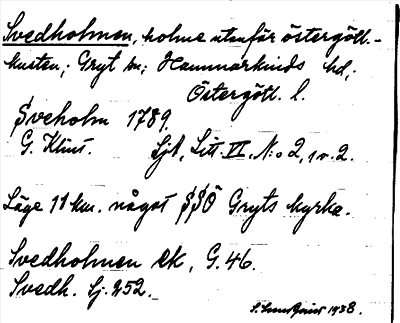 Svedholmen, holme utanför östergötl.-
kusten, Gryt sn; Hammarkinds hd,
Östergötl. l.
Sveholm 1789.
G. Klint. Sjk, Litt. II, N:o 2, 1 v. 2.
Läge 11 km. något SSÖ Gryts kyrka.
Svedholmen Ek, G. 46.
Svedh. Sj. 252.
1938.